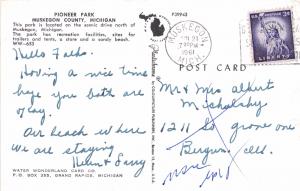 PIONEER PARK
MUSKEGON COUNTY, MICHIGAN
This park is located on the scenic drive north of
Muskegon, Michigan.
The park has recreation facilities, sites for
trailers and tents, a store and a sandy beach.
WW-653
P39943
MUSKEGON
7 30 PM
1961
MICH.
U.S. POSTAGE
3¢
LIBERTY
POST CARD
Hello Folks.
Having a nice time
hope you both are
okay.
Our beach where
we are staying
Mr & Mrs Albert
1211 So grove ave
Berwyn, Ills.
WATER WONDERLAND CARD CO.
P. O. BOX 255, GRAND RAPIDS, MICHIGAN